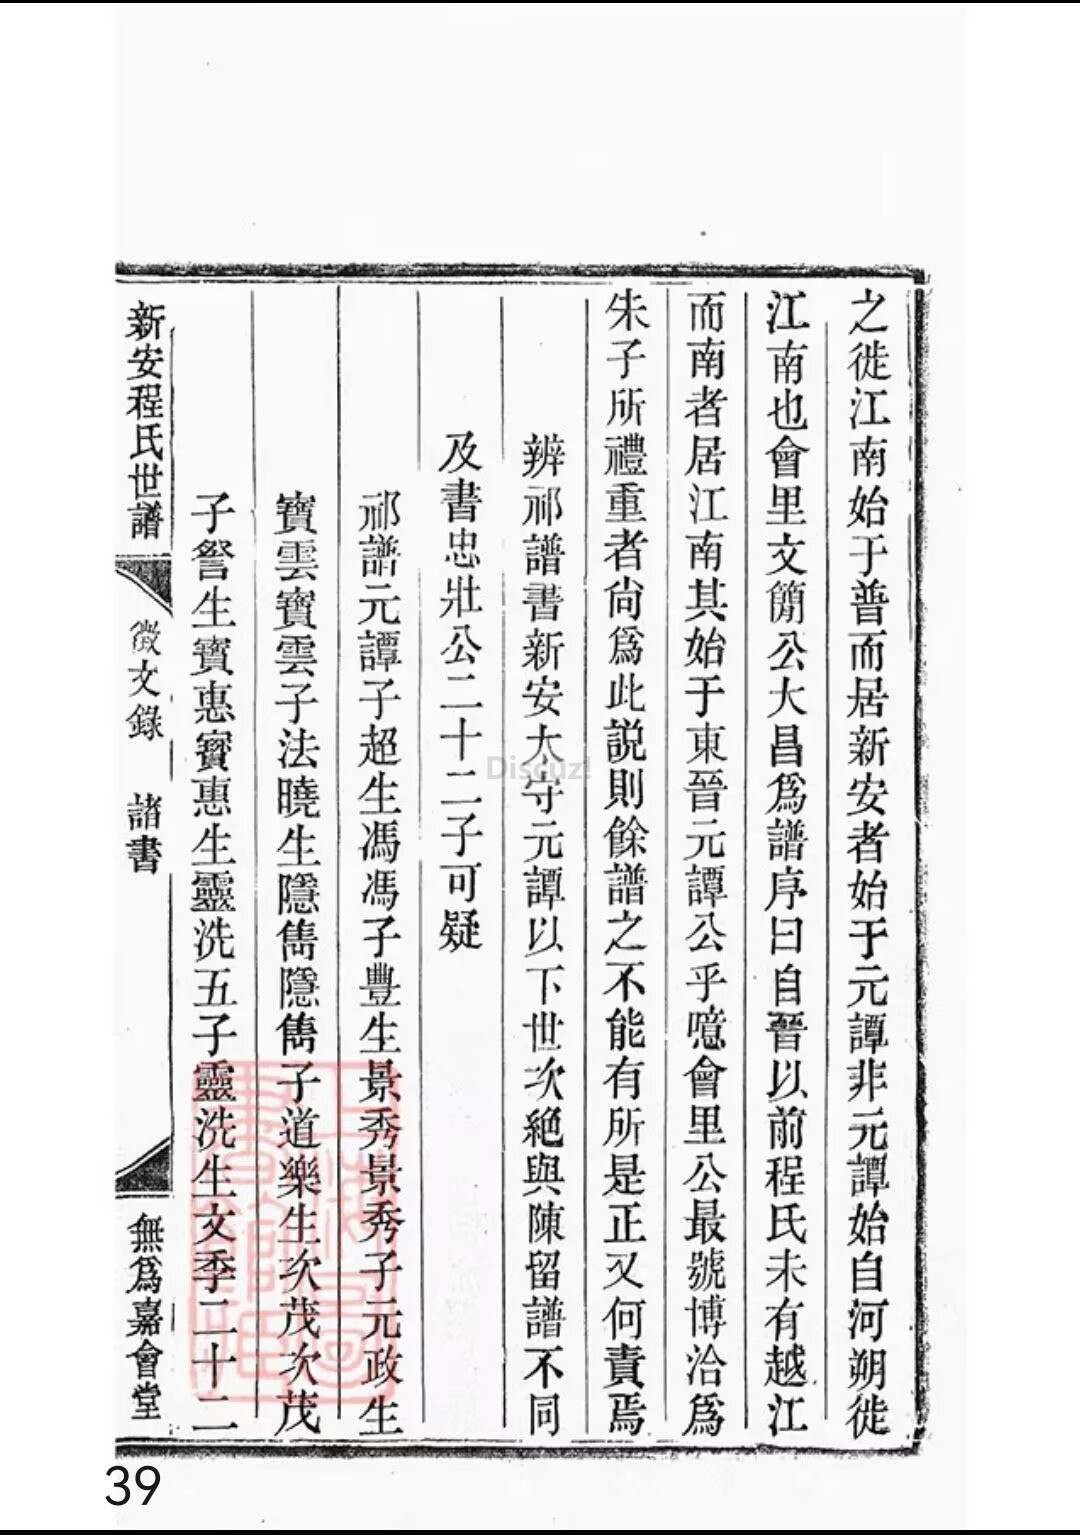 之徙江南始于普而居新安者始于元譚非元譚始自河朔徙
江南也會里文簡公大昌爲譜序曰自晉以前程氏未有越江
而南者居江南其始于東晉元譚公乎噫會里公最號博洽爲
朱子所禮重者尙爲此説則餘譜之不能有所是正又何責焉
辨祁譜書新安太守元譚以下世次絕與陳留譜不同
及書忠壯公二十二子可疑
祁譜元譚子超生馮馮子豐生景秀景秀子元政生
寶雲寶雲子法曉生隱雋隱雋子道樂生次茂次茂
子詧生寶惠寶惠生靈洗五子靈洗生文季二十二
新安程氏世譜 徵文錄 諸書 無爲嘉會堂
上海圖書館藏
Discuz!
39